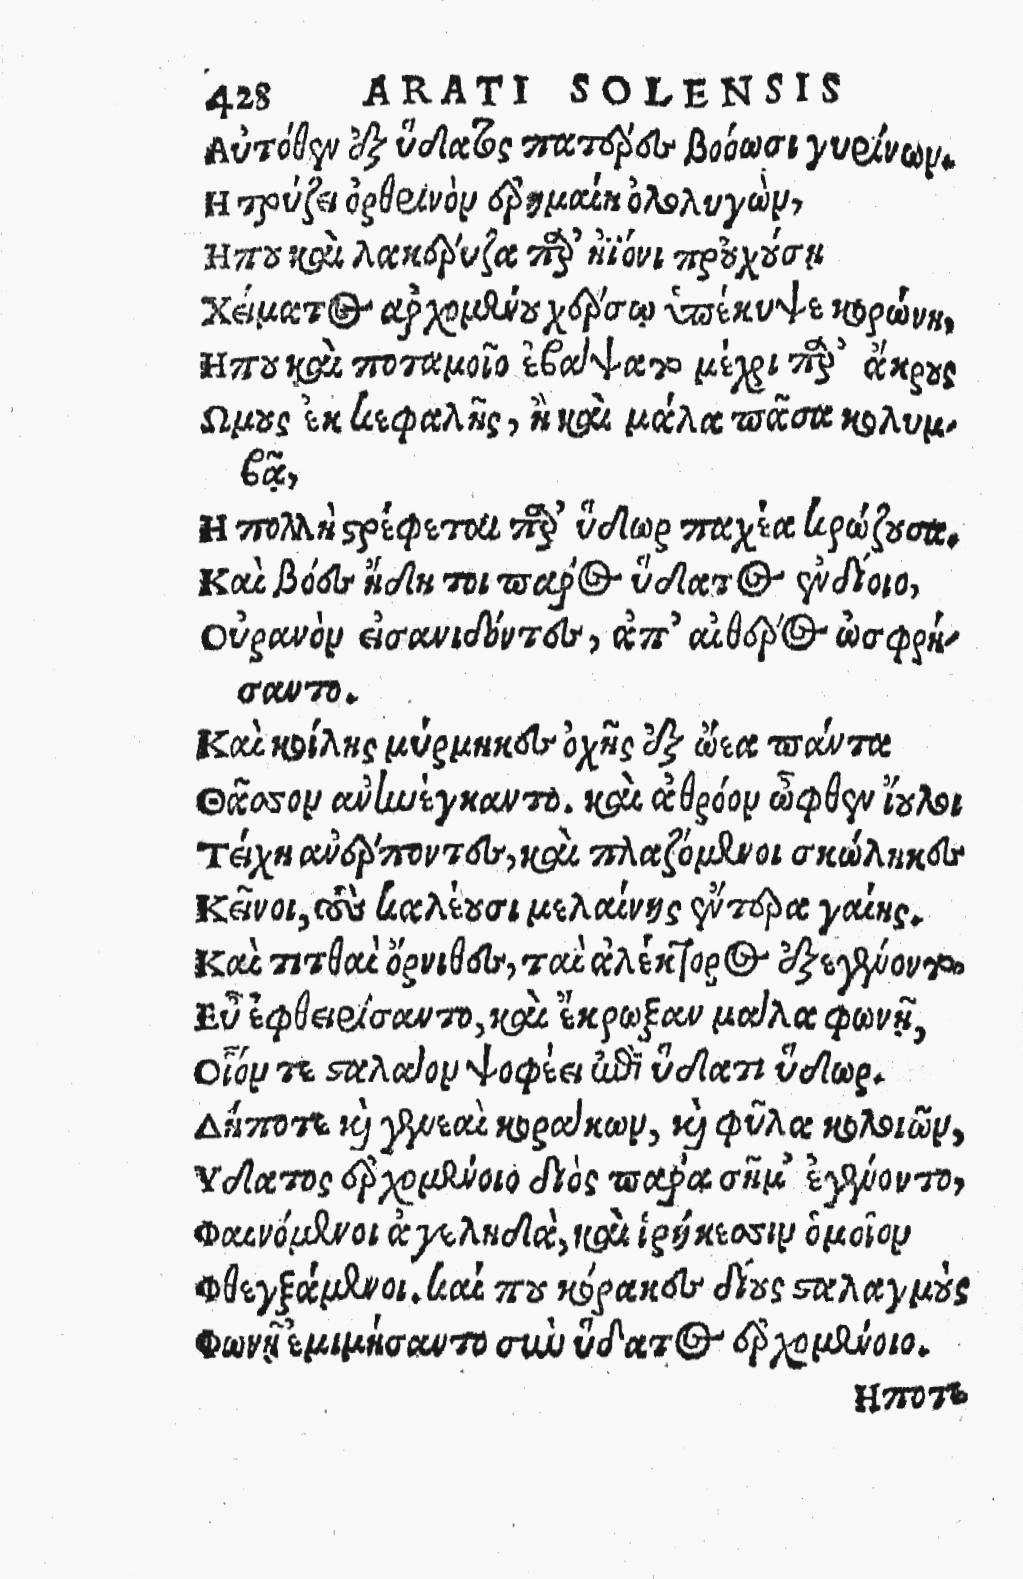 428 ARATI SOLENSIS
Αὐτόθεν ἐξ ὕδατος πατέρες βοόωσι γυρίνων.
Η τρύζει ὀρθρινὸν ἐρημαίη ὀλολυγὼν,
Ηπου καὶ λακέρυζα παρ' ἠϊόνι προυχούσῃ
Χείματος ἀρχομένου χέρσῳ ὑπέκυψε κορώνη,
Ηπου καὶ ποταμοῖο ἐβάψατο μέχρι παρ' ἄκρους
Ωμους ἐκ κεφαλῆς, ἢ καὶ μάλα πᾶσα κολυμ-
βᾷ,
Η πολλὴ στρέφεται παρ' ὕδωρ παχέα κρώζουσα.
Καὶ βόες ἤδη τοι πάρος ὕδατος ἐνδίοιο,
Οὐρανὸν εἰσανιδόντες, ἀπ' αἰθέρος ὠσφρή-
σαντο.
Καὶ κοίλης μύρμηκες ὀχῆς ἐξ ὤεα πάντα
Θᾶσσον ἀνηνέγκαντο. καὶ ἀθρόον ὦφθεν ἴουλοι
Τείχη ἀνέρποντες, καὶ πλαζόμενοι σκώληκες
Κεῖνοι, τοὺς καλέουσι μελαίνης ἔντερα γαίης.
Καὶ τιτθαὶ ὄρνιθες, ταὶ ἀλέκτορος ἐξεγένοντο
Εὖ ἐφθειρίσαντο, καὶ ἔκρωξαν μάλα φωνῇ,
Οἷόν τε σταλάον ψοφέει ἐπὶ ὕδατι ὕδωρ.
Δήποτε καὶ γενεαὶ κοράκων, καὶ φῦλα κολοιῶν,
Υδατος ἐρχομένοιο διὸς πάρα σῆμ' ἐγένοντο,
Φαινόμενοι ἀγεληδὰ, καὶ ἱρήκεσσιν ὁμοῖον
Φθεγξάμενοι. καί που κόρακες δίους σταλαγμοὺς
Φωνῇ ἐμιμήσαντο σὺν ὕδατος ἐρχομένοιο.
Ηποτε